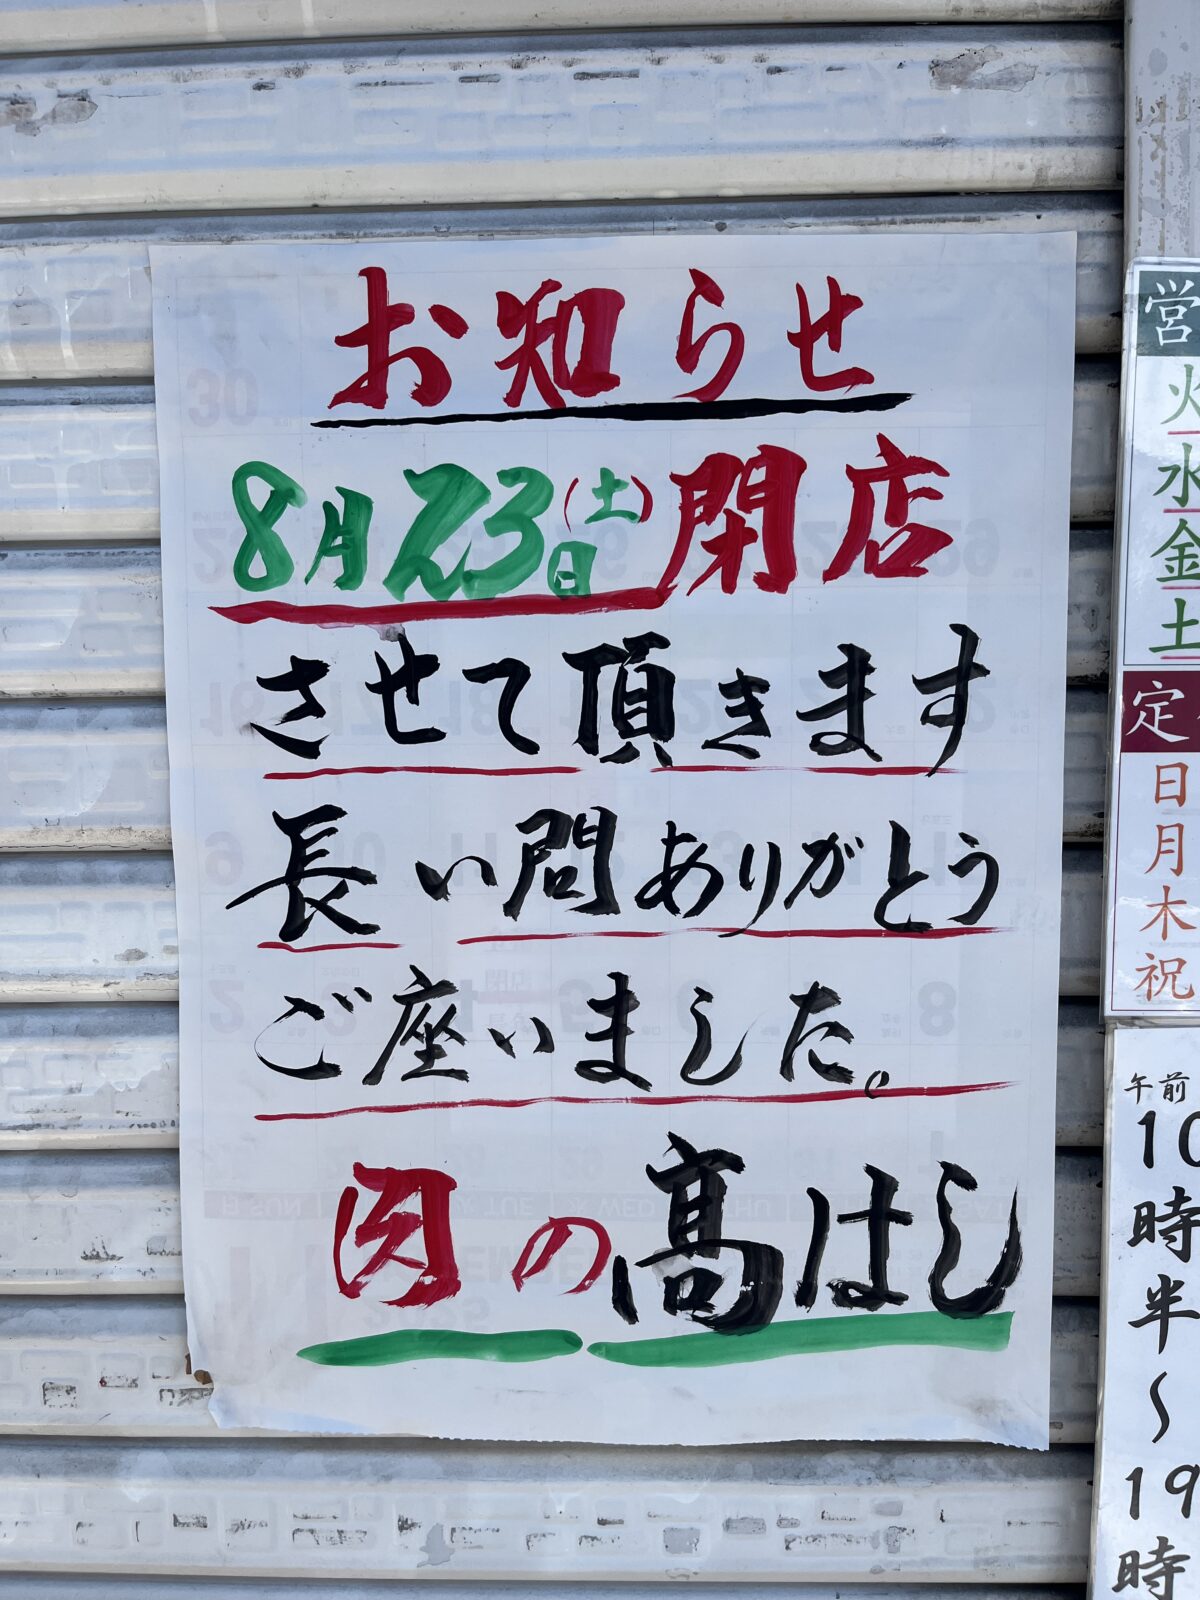 お知らせ
8月23日(土)閉店
させて頂きます
長い間ありがとう
ご座いました。
肉の髙はし
営
火
水
金
土
定
日
月
木
祝
午前
10
時
半
〜
19
時